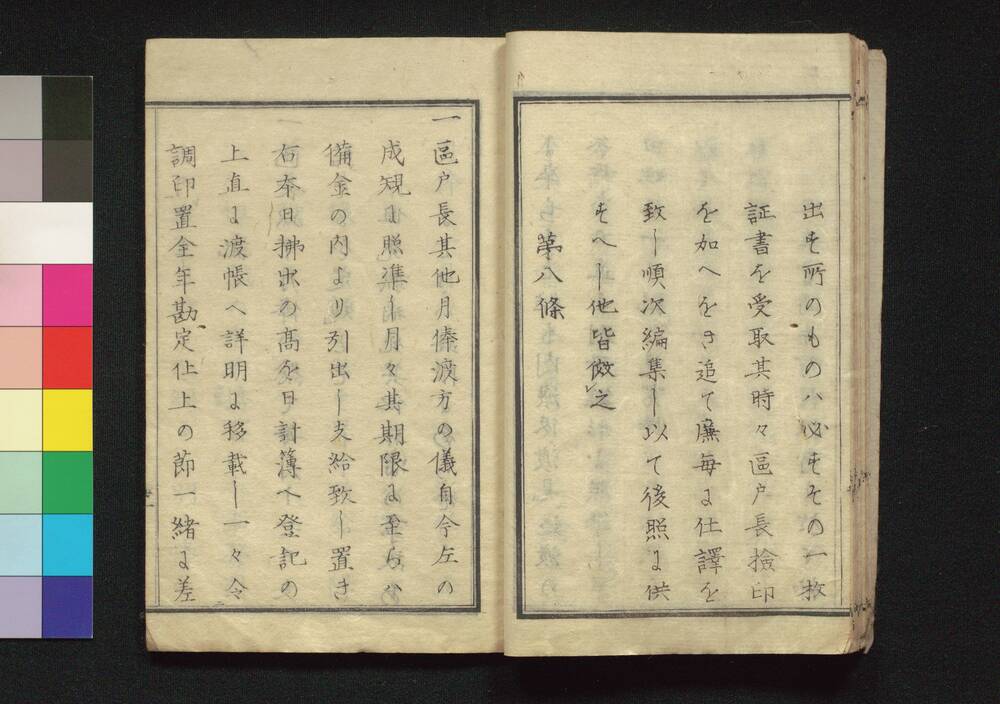 出す所のものハ必すその一枚
証書を受取其時々區戸長撿印
を加へをき追て廉毎に仕譯を
致し順次編集し以て後照に供
すへし他皆傚之
第八條
一區戸長其他月俸渡方の儀自今左の
成規に照準し月々其期限に至らハ
備金の内より引出し支給致し置き
右夲日拂出の髙を日計簿へ登記の
上直に渡帳へ詳明に移載し一々令
調印置全年勘定仕上の節一緒に差